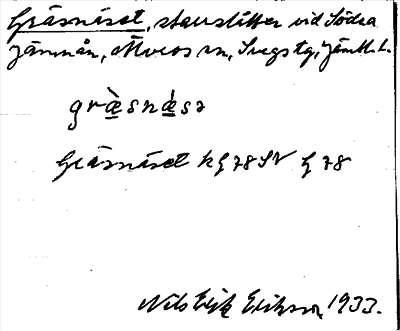 Gräsnäset, slåtter vid Södra
Järnån, Älvros sn, Svegs tg, Jämtl. l.
græ̀snæ̀sə
Gräsnäset kg 78 SV G 78
Nils Erik Erikson, 1933.